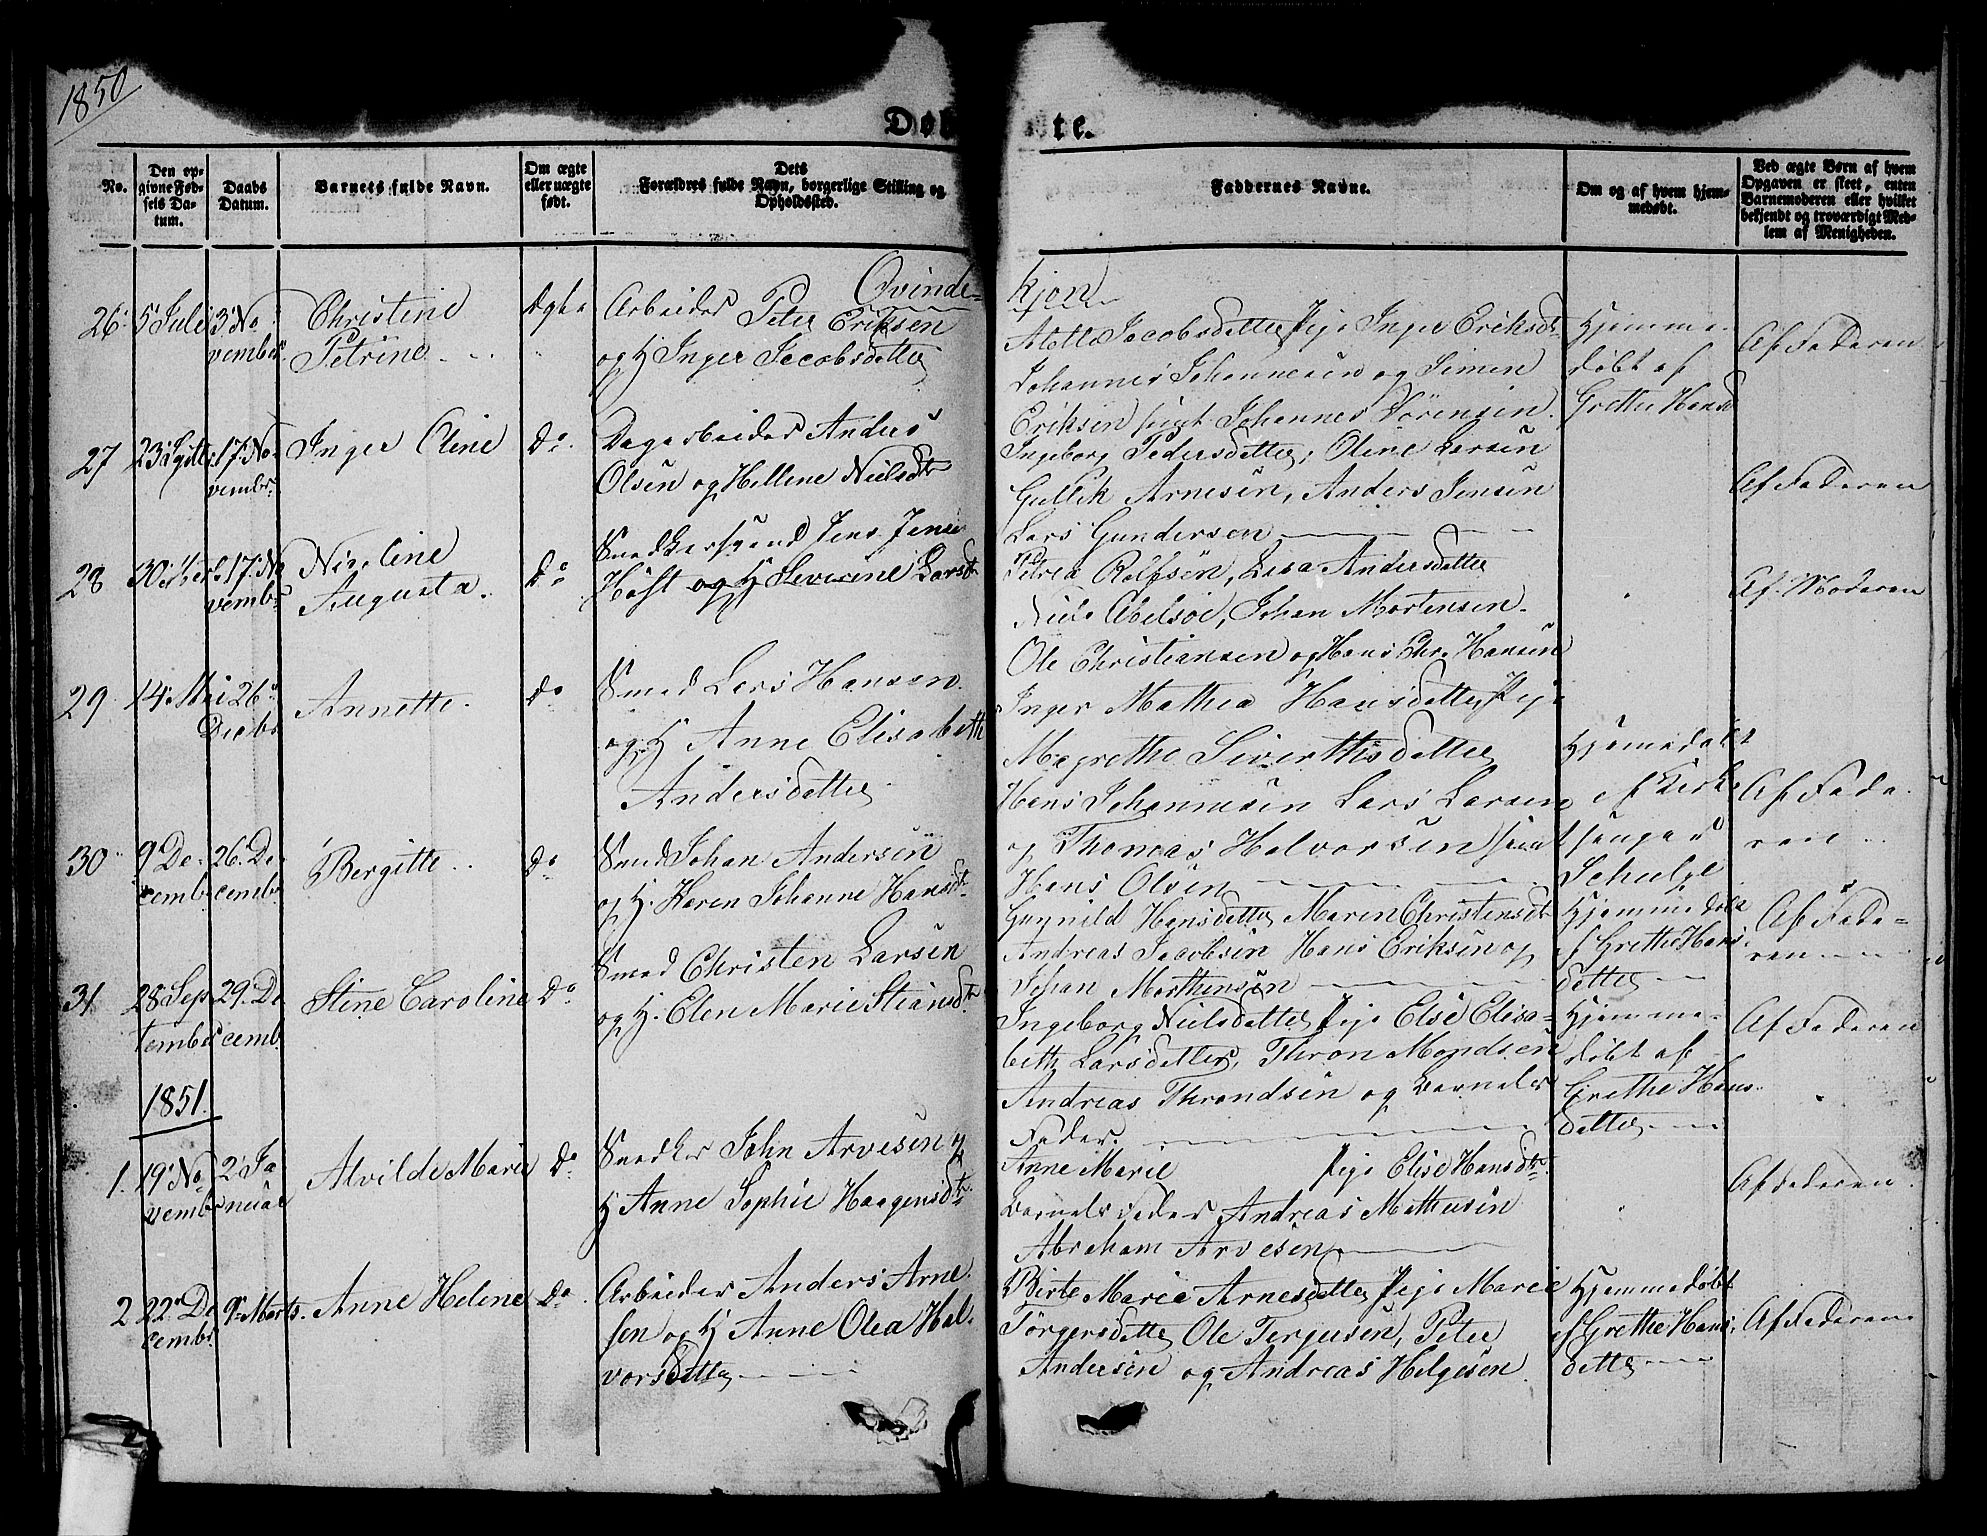 1850
Døbte.
No.
Den opgivne Fødsels Datum.
Daabs Datum.
Barnets fulde Navn.
Om ægte eller uægte født.
Dets Forældres fulde Navn, borgerlige Stilling og Opholdssted.
Faddernes Navne.
Om og af hvem hjemmedøbt.
Ved ægte Børn af hvem Opgaven er skeet, enten Barnemoderen eller hvilket bekjendt og troværdigt Medlem af Menigheden.
Qvinde-
kjøn
26 5 Juli 3 No
vember
Christine
Petrine
Ægte
Arbeider Peter Eriksen
og H Inger Jacobsdatter
Jacobsdatter Pige Inger Eriksdt
Johannes Johannesen og Simen
Eriksen samt Johannes Sørensen
Hjemme
døbt af
Grethe Hansd
Af Faderen
27 23 Septbr 17 No
vembr
Inger Oline
Do
Dagarbeider Anders
Olsen og Hellene Nielsdtr
Ingeborg Pedersdatter, Oline Larsen
Gullik Arnesen, Anders Jensen
Lars Gundersen
Af Faderen
28 30 17 No
vembr
Nicoline
Augusta
Do
Snedkersvend Jens Jensen
Høst og H Severine Larsdt
Petrea Rolfsen, Lisa Andersdatter
Niels Abelsøe, Johan Mortensen
Ole Christiansen og Hans Chr. Hansen
Af Moderen
29 14 Mai 26
Decbr
Annette
Do
Smed Lars Hansen
og H Anne Elisabeth
Andersdatter
Inger Mathea Hansdatter Pige
Magrethe Siverthsdatter
Hans Johannesen Lars Larsen
og Thomas Halvorsen samt
Hans Olsen
Hjemedøbt
af Kirke
sanger
Schulze
Af Fade
ren
30 9 De
cembr
26 De
cembr
Bergitte
Do
Smed Johan Andersen
og H. Karen Johanne Hansdt
Gunnild Hansdatter Maren Christensdt
Andreas Jacobsen Hans Eriksen og
Johan Morthensen
Hjemmedøbt
af Grethe Hans
datter
Af Fade-
ren
31 28 Sep
tember
29 De
cemb.
Stine Caroline
Do
Smed Christen Larsen
og H. Elen Marie Stiansdt
Ingeborg Nielsdatter Pige Else Elisa-
beth Larsdatter, Thron Mondsen
Andreas Throndsen og Barnets
Fader.
Hjemme-
døbt af
Grethe Hans
datter
Af Faderen
1851.
1. 19 No
vembr
2 Ja
nuar
Alvilde Marie
Do
Snedker John Arvesen og
H Anne Sophie Haagensdt
Anne Marie Pige Elise Hansdtr
Barnets Fader Andreas Mathesen
Abraham Arvesen
Af Faderen
2 22 De
cembr
9 Marts.
Anne Helene
Do
Arbeider Anders Arne
sen og H Anne Olea Hal-
vorsdatter
Birte Marie Arnesdatter Pige Marie
Torgersdatter Ole Terjesen, Peter
Andersen og Andreas Helgesen
Hjemmedøbt
af Grethe Hans
datter
Af Faderen